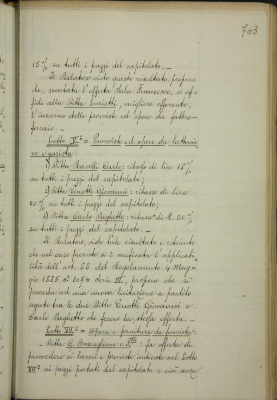 703
15 % su tutti i prezzi del capitolato. _
Il Relatore visto questo risultato, propone
che, scartata l'offerta Isola Francesco, si af-
fidi alla Ditta migliore offerente,
l'incarico delle provviste ed opere da fabbro-
ferraio. _
Lotto V° = Provviste ed opere da lattonie-
re e gazista:
1) Ditta Carlo: ribasso di lire 18 %
su tutti i prezzi del capitolato;
2) Ditta Giovanni: ribasso di lire
20 % su tutti i prezzi del capitolato;
3) Ditta Carlo Baghetto: ribasso di L. 20 %
su tutti i prezzi del capitolato. _
Il Relatore, visto tale risultato e ritenuto
che nel caso presente si è verificata l'applicabi-
lità dell'art. 88 del Regolamento 4 Mag-
gio 1885 n° 3074 Serie III, propone che si
proceda ad una nuova licitazione a partito
segreto tra le due Ditte Giovanni e
Carlo Baghetto che fecero la stessa offerta. _
Lotto VII° = Opere e forniture da fumista. _
Ditta G. Buscaglione e F.lli = fa offerta di
provvedere ai lavori e provviste indicate nel Lotto
VII° ai prezzi portati dal capitolato e cioè senza